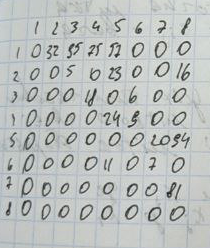 1 2 3 4 5 6 7 8
1 0 32 95 25 57 0 0 0
2 0 0 5 0 23 0 0 16
3 0 0 0 18 0 6 0 0
4 0 0 0 0 24 9 0 0
5 0 0 0 0 0 0 20 94
6 0 0 0 0 11 0 7 0
7 0 0 0 0 0 0 0 81
8 0 0 0 0 0 0 0 0